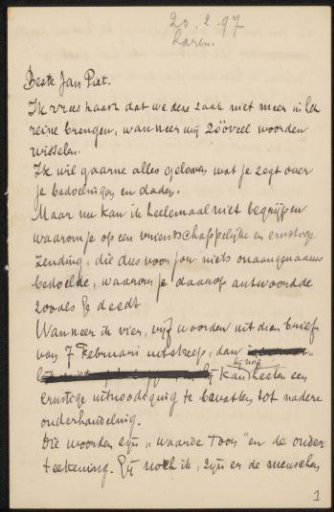 20.2.97
Laren.
Beste Jan Piet.
Ik vrees haast dat we deze zaak niet meer in het
reine brengen, wanneer wij zóóveel woorden
wisselen.
Ik wil gaarne alles gelooven wat je zegt over
je bedoelingen en daden.
Maar nu kan ik heelemaal niet begrijpen
waarom je op een vriendschappelijke en ernstige
zending, die dus voor jou niets onaangenaams
bedoelde, waarom je daarop antwoordde
zooals je deedt
Wanneer ik vier, vijf woorden uit dien brief
van 7 Februari uitstreep, dan
hij kan heeten een
ernstige uitnoodiging te bevatten tot nadere
onderhandeling.
Die woorden zijn „waarde Toon" en de onder
teekening. Gij noch ik, zijn er de menschen
1